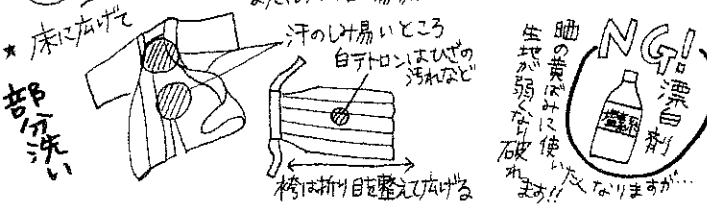 ★ 床に広げて
部分洗い
汗のしみ易いところ
白テトロンはひざの
汚れなど
袴は折り目を整えて広げる
NG!
漂白剤
塩素系
晒の黄ばみに使いたくなりますが…
生地が弱くなり破れます!!